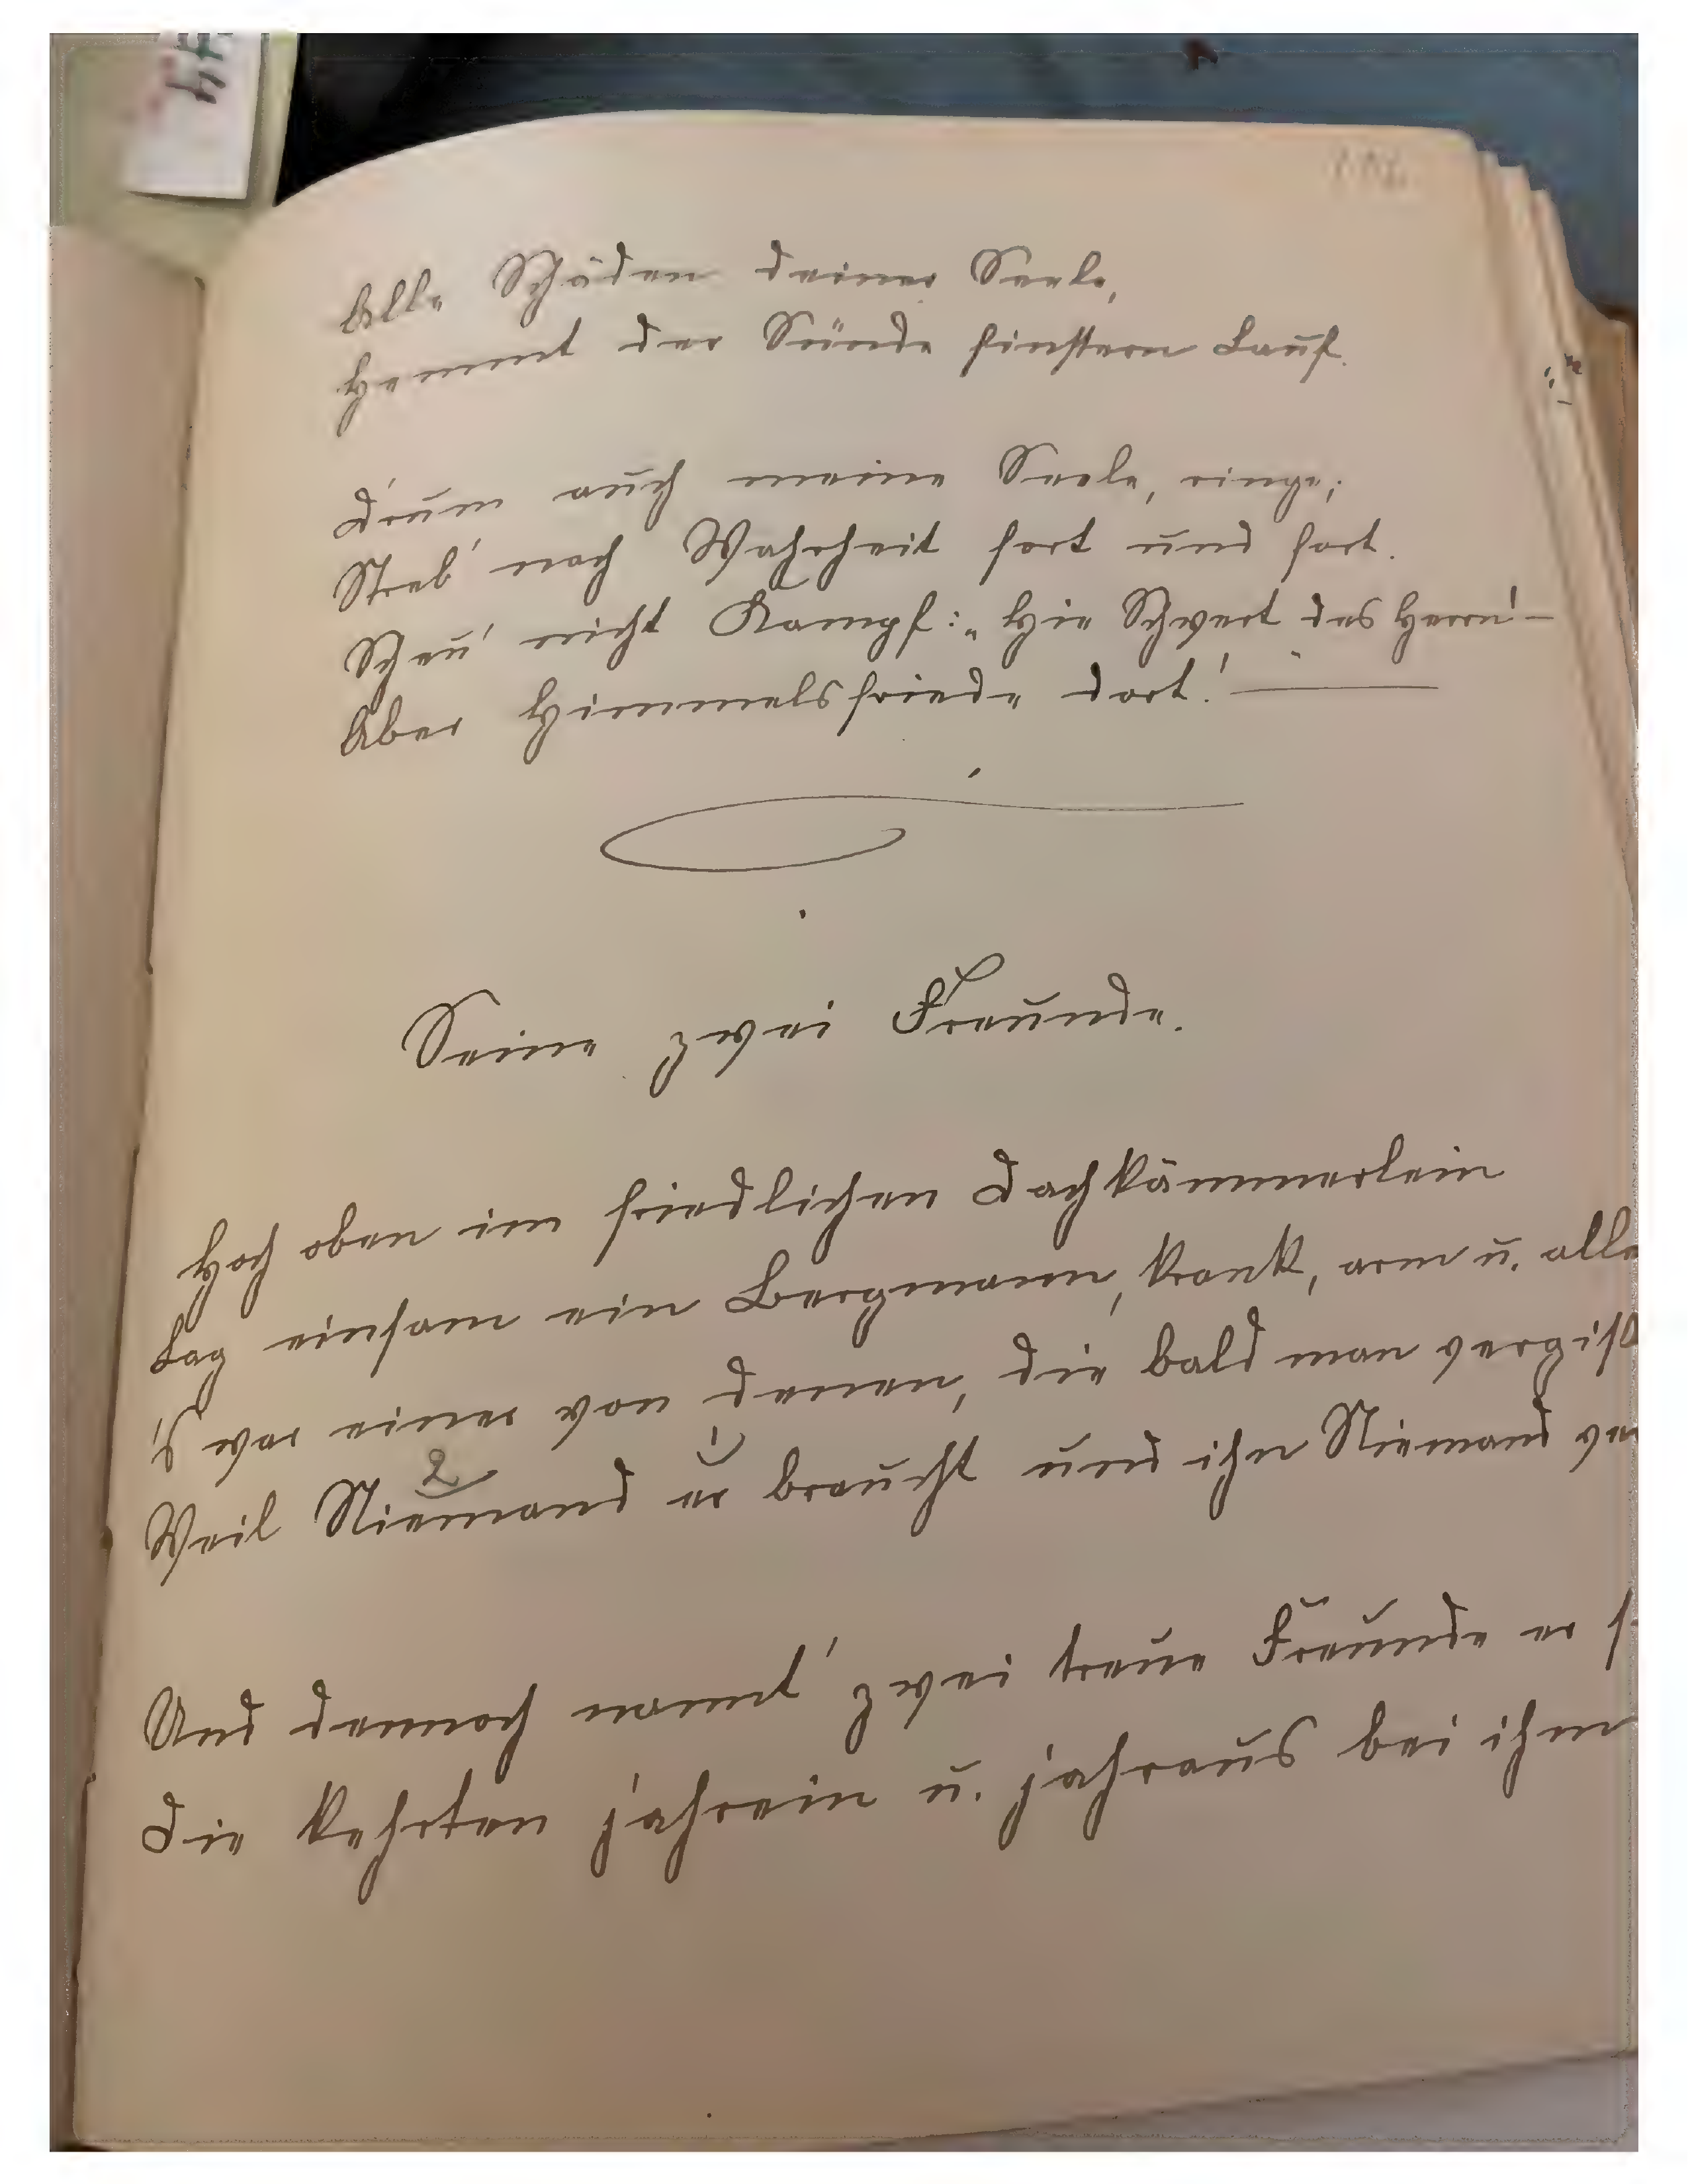 Alle Schäden deiner Seele,
Hemmt der Sünde finstern Lauf.
Drum auch meine Seele, ringe;
Streb' nach Wahrheit fort und fort.
Scheu' nicht Kampf: „Hie Schwert des Herrn!" –
Aber Himmelsfriede dort! –
Seine zwei Freunde.
Hoch oben im friedlichen Dachkämmerlein
Lag einsam ein Bergmann, krank, arm u. alle
's war einer von denen, die bald man vergiß
Weil Niemand er braucht und ihn Niemand ver
2 1
Und dennoch nannt' zwei treue Freunde er s
Die kehrten jahrein u. jahraus bei ihm